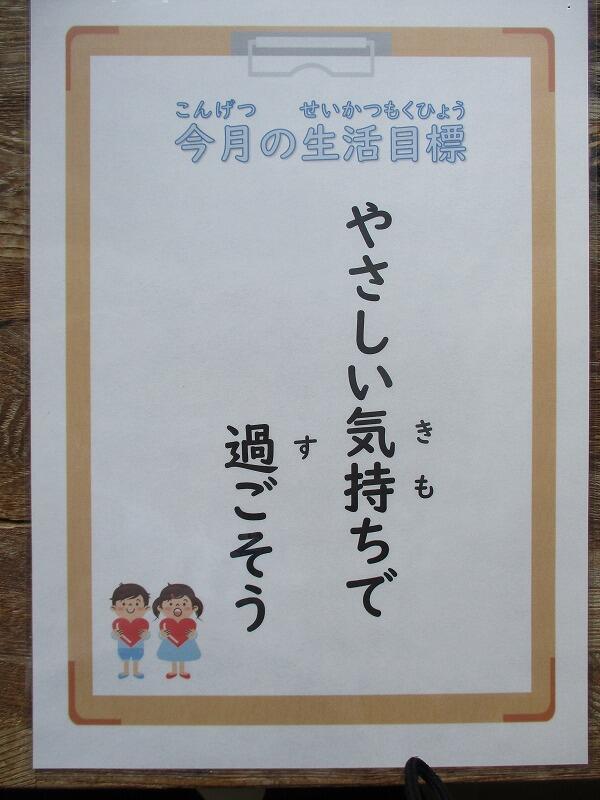 こんげつ　せいかつもくひょう
今月の生活目標
やさしい気持ちで
きも
過ごそう
す